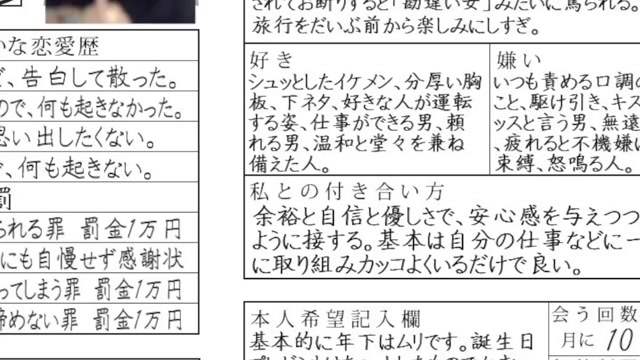 いな恋愛歴
ど、告白して散った。
ので、何も起きなかった。
思い出したくない。
で、何も起きない。
罰
られる罪 罰金1万円
にも自慢せず感謝状
ってしまう罪 罰金1万円
締めない罪 罰金1万円
されてお断りすると「勘違い女」みたいに罵られる。
旅行をだいぶ前から楽しみにしすぎ。
好き
シュッとしたイケメン、分厚い胸
板、下ネタ、好きな人が運転
する姿、仕事ができる男、頼
れる男、温和と堂々を兼ね
備えた人。
嫌い
いつも責める口調の
こと、駆け引き、キス
ッスと言う男、無遠
、疲れると不機嫌に
束縛、怒鳴る人。
私との付き合い方
余裕と自信と優しさで、安心感を与えつつ
ように接する。基本は自分の仕事などに一
に取り組みカッコよくいるだけで良い。
本人希望記入欄
基本的に年下はムリです。誕生日
会う回数
月に 10